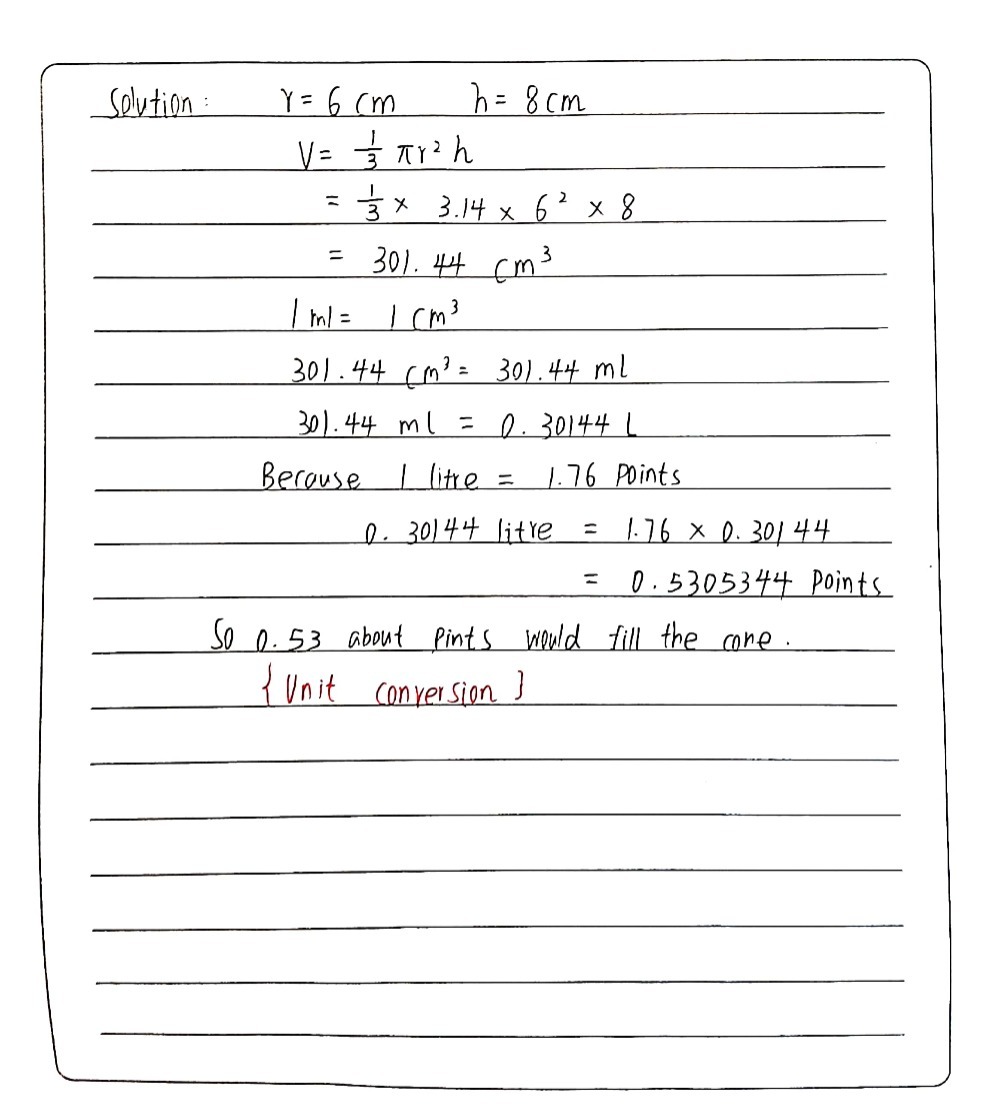 Solution: r = 6 cm h = 8 cm
V = 1/3 πr² h
= 1/3 × 3.14 × 6² × 8
= 301.44 cm³
1 ml = 1 cm³
301.44 cm³ = 301.44 ml
301.44 ml = 0.30144 L
Because 1 litre = 1.76 Points
0.30144 litre = 1.76 × 0.30144
= 0.5305344 Points
So 0.53 about Pints would fill the cone.
{Unit conversion}